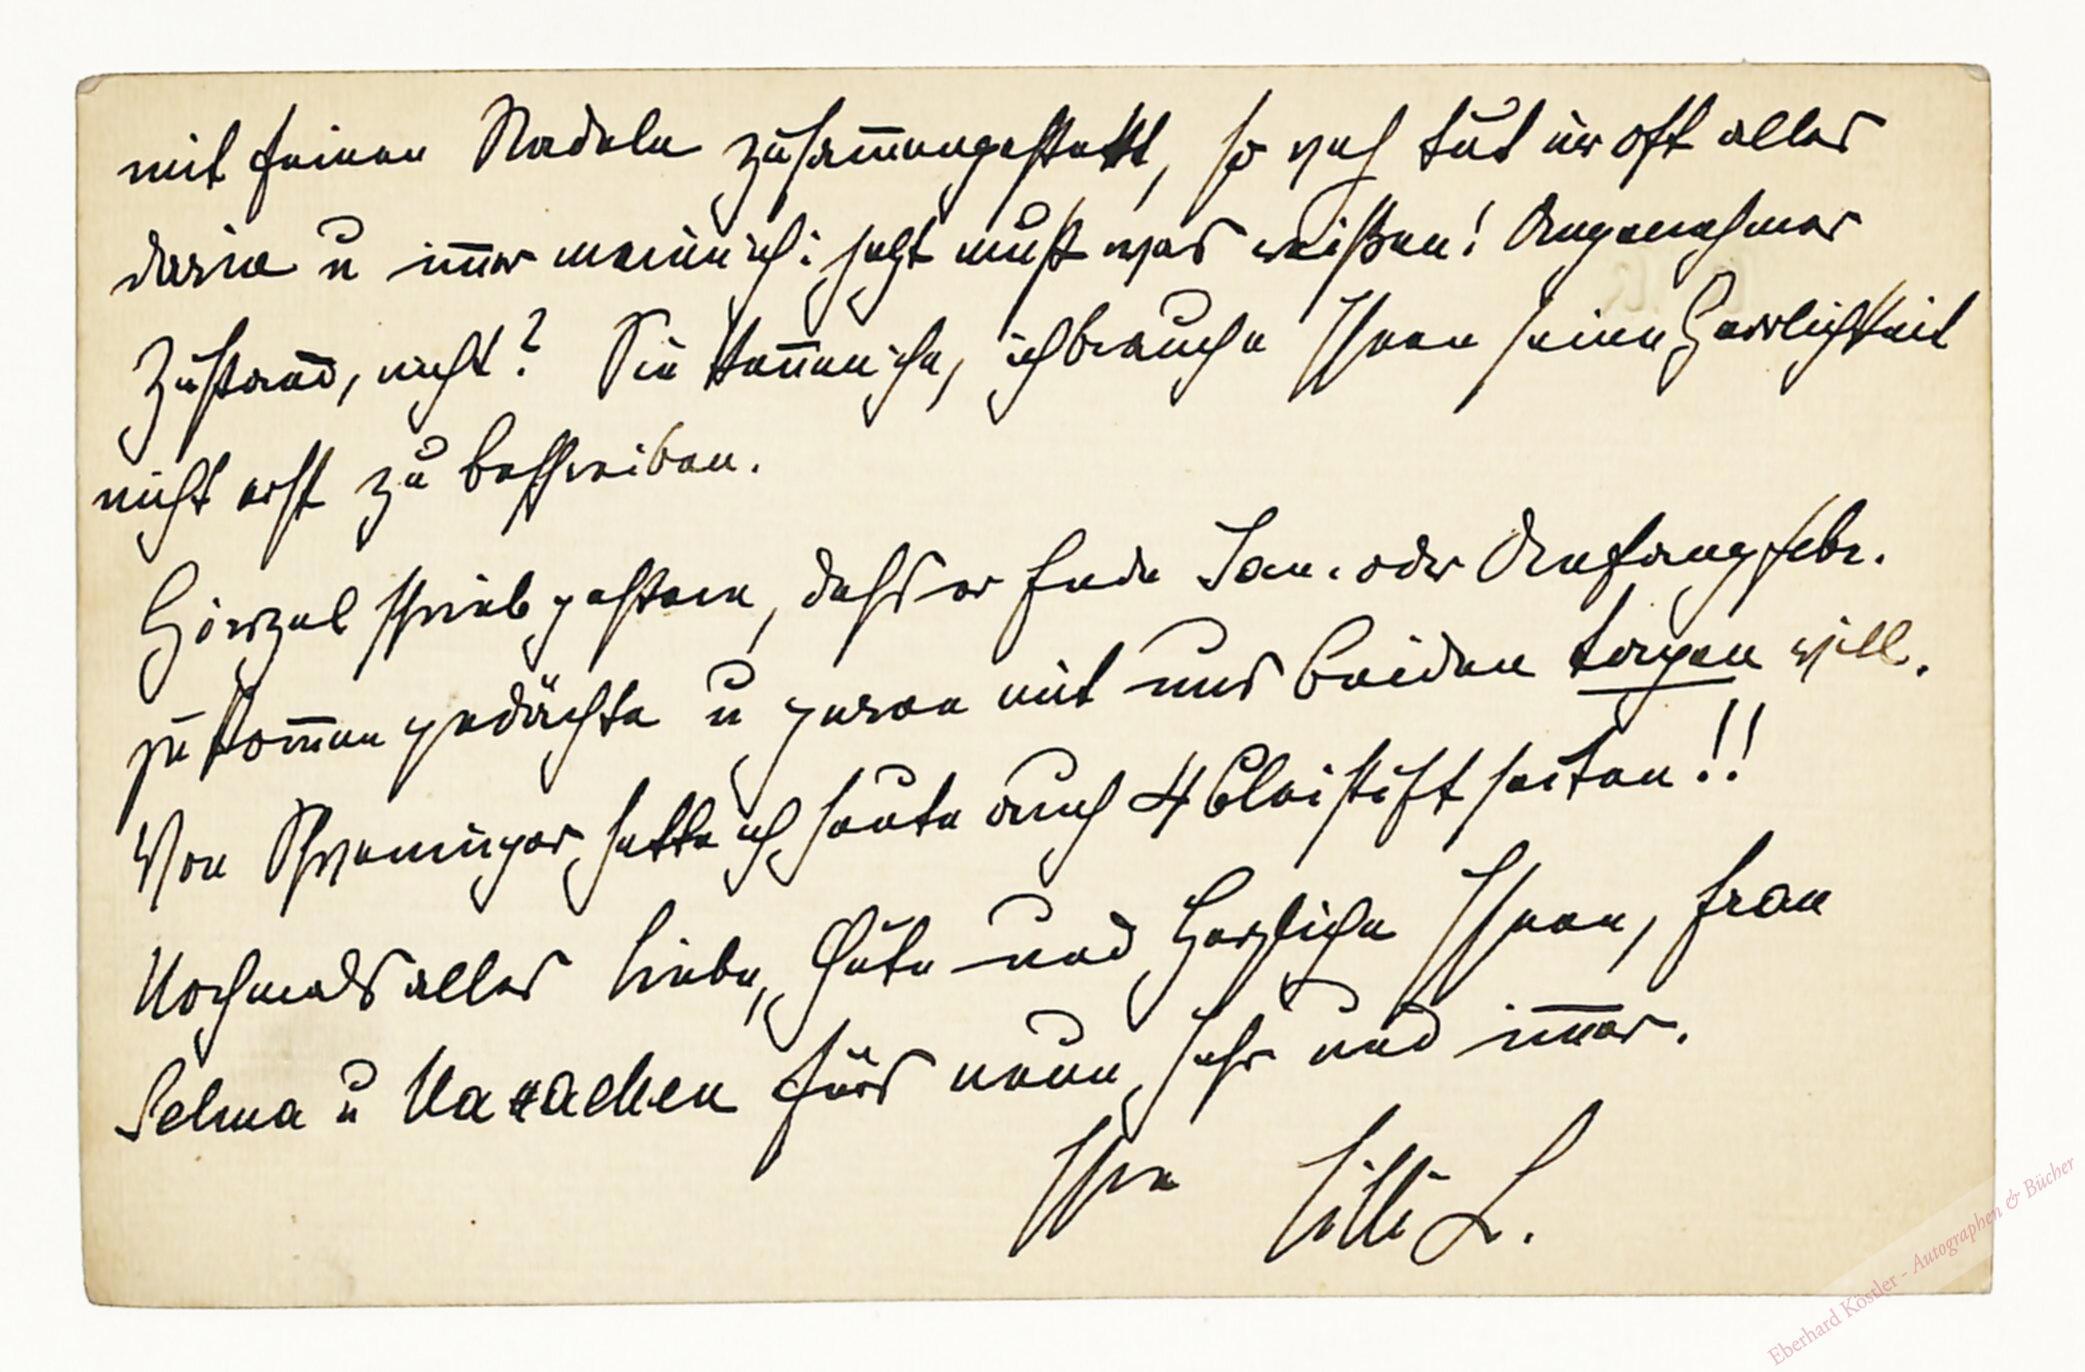 mit feinen Nadeln zusam̅engesteckt, so weh tut mir oft alles
darin u im̅er mein ich: jetzt muß was reißen! Angenehmer
Zustand, nicht? Sie ken̅en ihn, ich brauche Ihnen seine Herrlichkeit
nicht erst zu beschreiben.
schrieb gestern, dass er Ende Jan. oder Anfang Febr.
zu kom̅en gedächte u gerne mit uns beiden tagen will.
Von Schweninger hatte ich heute auch 4 Bleistiftseiten!!
Nochmals alles Liebe, Gute und Herzliche Ihnen, Frau
Selma u fürs neue Jahr und im̅er.
Ihre Lilli L.
Eberhard Köstler - Autographen & Bücher